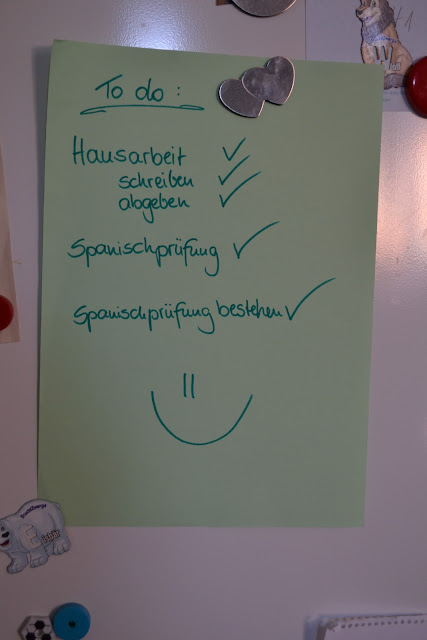 To do :
Hausarbeit ✓
schreiben ✓
abgeben ✓
Spanischprüfung ✓
Spanischprüfung bestehen ✓